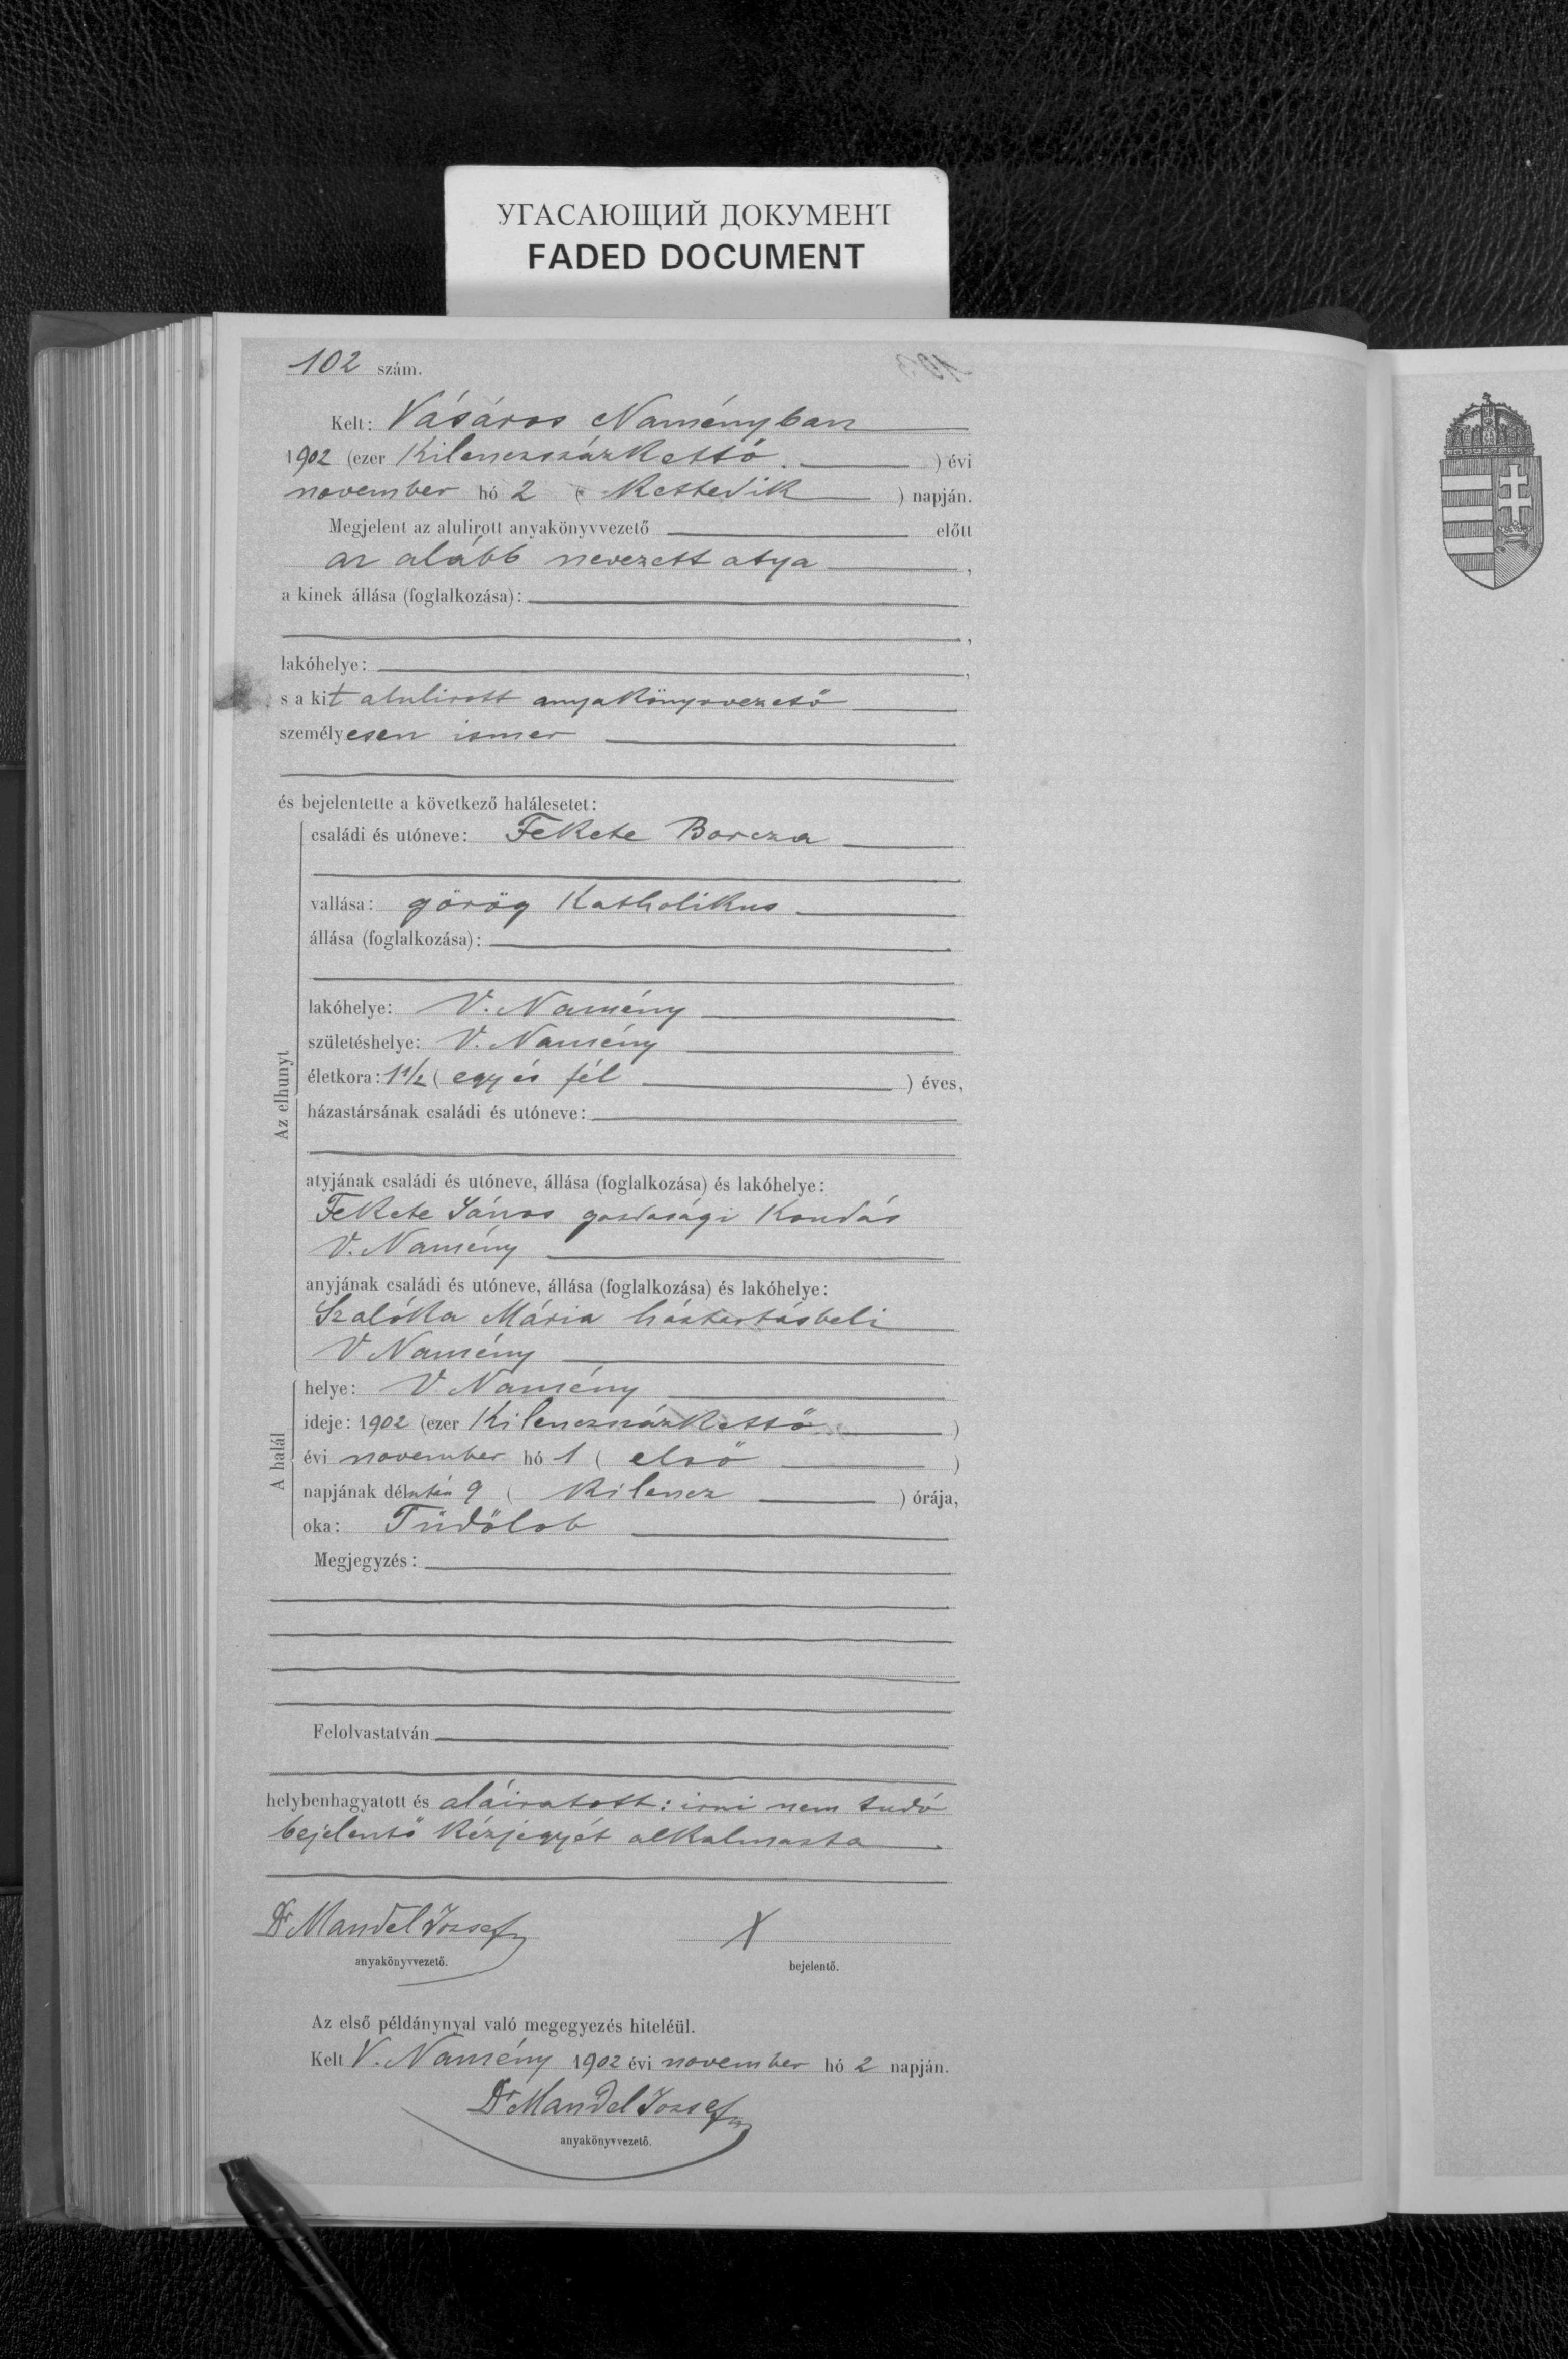 УГАСАЮЩИЙ ДОКУМЕНТ
FADED DOCUMENT
102 szám.
Kelt: Vásáros Naményban
1902 (ezer Kilenczszázkettő ) évi
november hó 2 ( Kettedik ) napján.
Megjelent az alulirott anyakönyvvezető előtt
az alább nevezett atya ,
a kinek állása (foglalkozása):
,
lakóhelye: ,
s a kit alulirott anyakönyvvezető
személyesen ismer
és bejelentette a következő halálesetet:
Az elhunyt
családi és utóneve: Fekete Borcza
vallása: görög Katholikus
állása (foglalkozása):
lakóhelye: V. Namény
születéshelye: V. Namény
életkora: 1 1/2 ( egy és fél ) éves,
házastársának családi és utóneve:
atyjának családi és utóneve, állása (foglalkozása) és lakóhelye:
Fekete János gazdasági Kondás
V. Namény
anyjának családi és utóneve, állása (foglalkozása) és lakóhelye:
Szalóka Mária háztartásbeli
V Namény
A halál
helye: V. Namény
ideje: 1902 (ezer Kilenczszázkettő )
évi november hó 1 ( első )
napjának délután 9 ( Kilencz ) órája,
oka: Tüdőlob
Megjegyzés:
Felolvastatván
helybenhagyatott és aláiratott: irni nem tudó
bejelentő Kézjegyét alkalmazta .
Dr Mandel József X
anyakönyvvezető. bejelentő.
Az első példánynyal való megegyezés hiteléül.
Kelt V. Namény 1902 évi november hó 2 napján.
Dr Mandel József
anyakönyvvezető.